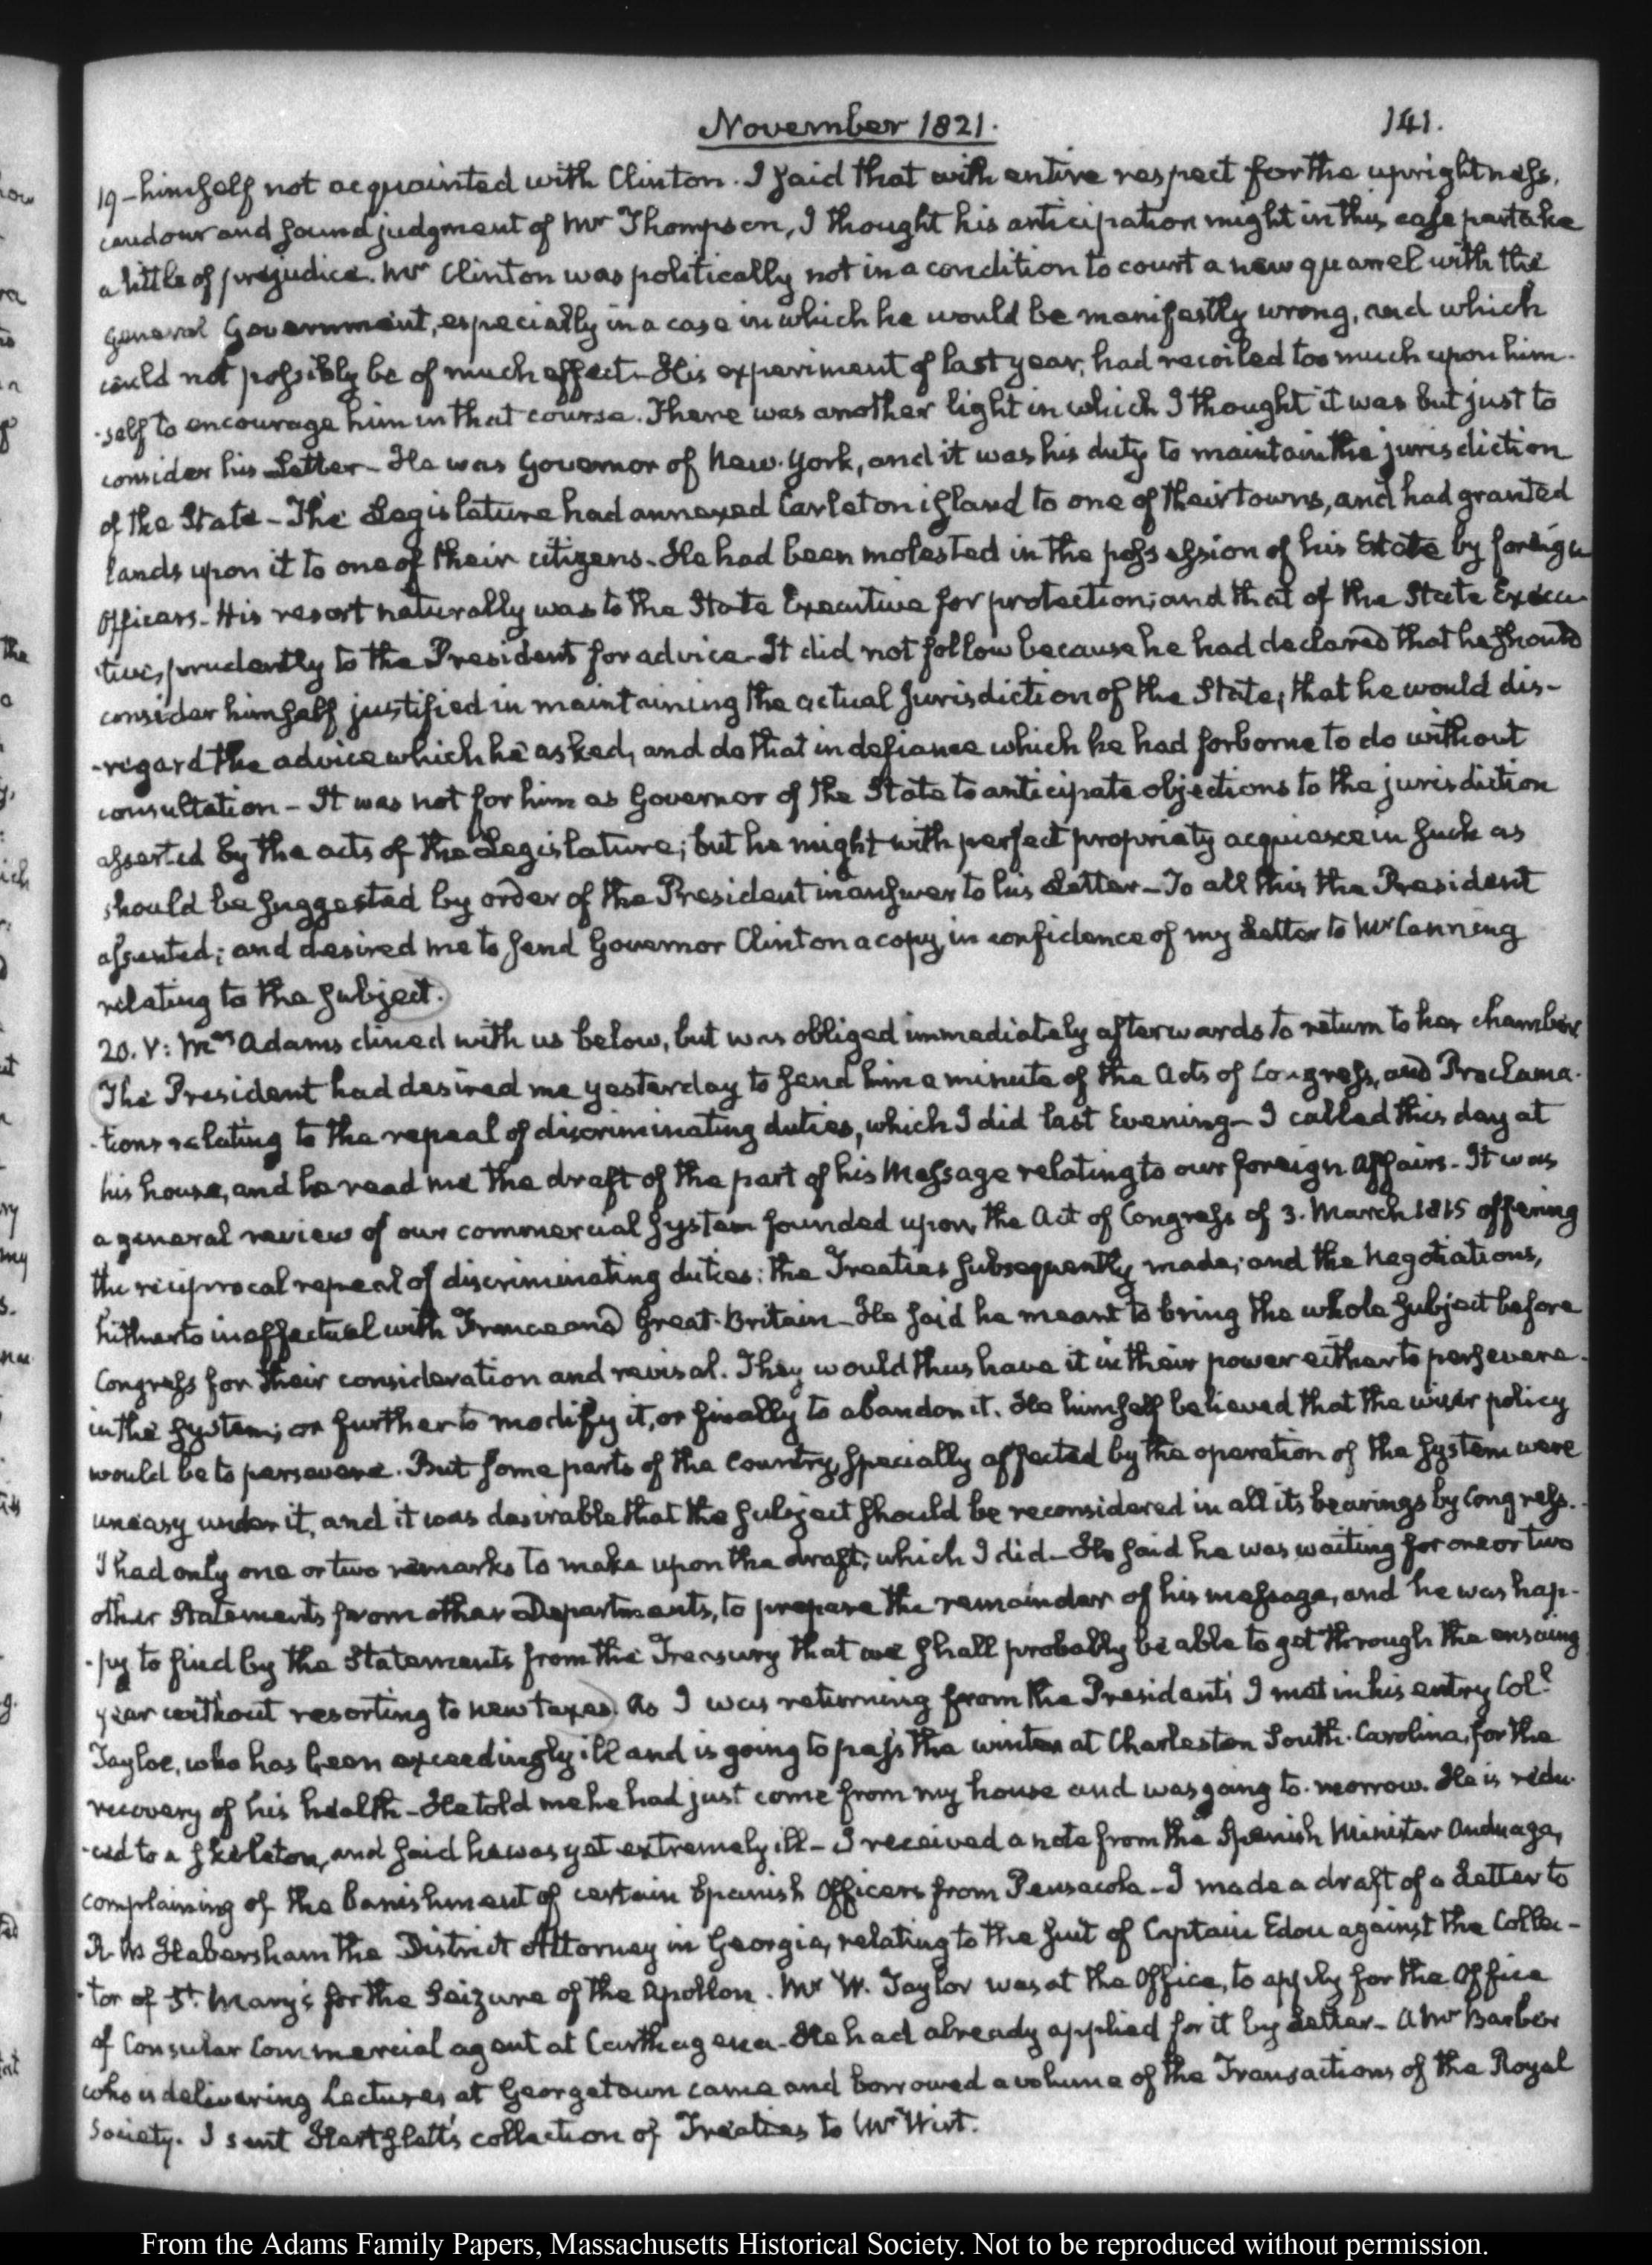 November 1821.
141.
19 - himself not acquainted with Clinton. I said that with entire respect for the uprightness,
candour and sound judgment of Mr Thompson, I thought his anticipation might in this case partake
a little of prejudice. Mr Clinton was politically not in a condition to court a new quarrel with the
general Government, especially in a case in which he would be manifestly wrong, and which
could not possibly be of much effect - His experiment of last year, had recoiled too much upon him-
-self to encourage him in that course. There was another light in which I thought it was but just to
consider his Letter - He was Governor of New-York, and it was his duty to maintain the jurisdiction
of the State - The Legislature had annexed Carleton island to one of their towns, and had granted
lands upon it to one of their citizens - He had been molested in the possession of his Estate by foreign
Officers - His resort naturally was to the State Executive for protection; and that of the State Execu-
-tive, prudently to the President for advice - It did not follow because he had declared that he should
consider himself justified in maintaining the actual jurisdiction of the State, that he would dis-
-regard the advice which he asked, and do that in defiance which he had forborne to do without
consultation - It was not for him as Governor of the State to anticipate objections to the jurisdiction
asserted by the acts of the Legislature; but he might with perfect propriety acquiesce in such as
should be suggested by order of the President in answer to his Letter - To all this the President
assented; and desired me to send Governor Clinton a copy, in confidence of my Letter to Mr Canning
relating to the subject.
20. V: Mrs Adams dined with us below, but was obliged immediately afterwards to return to her chamber.
The President had desired me yesterday to send him a minute of the Acts of Congress, and Proclama-
-tions relating to the repeal of discriminating duties, which I did last Evening - I called this day at
his house, and he read me the draft of the part of his Message relating to our foreign affairs - It was
a general review of our commercial system founded upon the Act of Congress of 3. March 1815 offering
the reciprocal repeal of discriminating duties: the Treaties subsequently made; and the Negotiations,
hitherto ineffectual with France and Great-Britain - He said he meant to bring the whole subject before
Congress for their consideration and revisal. They would thus have it in their power either to persevere
in the system; or further to modify it, or finally to abandon it. He himself believed that the wiser policy
would be to persevere. But some parts of the Country, specially affected by the operation of the system were
uneasy under it, and it was desirable that the subject should be reconsidered in all its bearings by Congress.
I had only one or two remarks to make upon the draft; which I did - He said he was waiting for one or two
other Statements from other Departments, to prepare the remainder of his message, and he was hap-
-py to find by the Statements from the Treasury that we shall probably be able to get through the ensuing
year without resorting to new taxes. As I was returning from the Presidents I met in his entry Coll
Tayloe, who has been exceedingly ill and is going to pass the winter at Charleston South-Carolina, for the
recovery of his health - He told me he had just come from my house and was going to-morrow. He is redu-
-ced to a skeleton, and said he was yet extremely ill - I received a note from the Spanish Minister Anduaga,
complaining of the banishment of certain Spanish Officers from Pensacola - I made a draft of a Letter to
R. W Habersham the District Attorney in Georgia, relating to the suit of Captain Edou against the Collec-
-tor of St. Mary's for the Seizure of the Apollon. Mr W. Taylor was at the Office, to apply for the Office
of Consular Commercial agent at Carthagena - He had already applied for it by Letter - A Mr Barber
who is delivering Lectures at Georgetown came and borrowed a volume of the Transactions of the Royal
Society. I sent Hertslett's collection of Treaties to Mr Wirt.
From the Adams Family Papers, Massachusetts Historical Society. Not to be reproduced without permission.